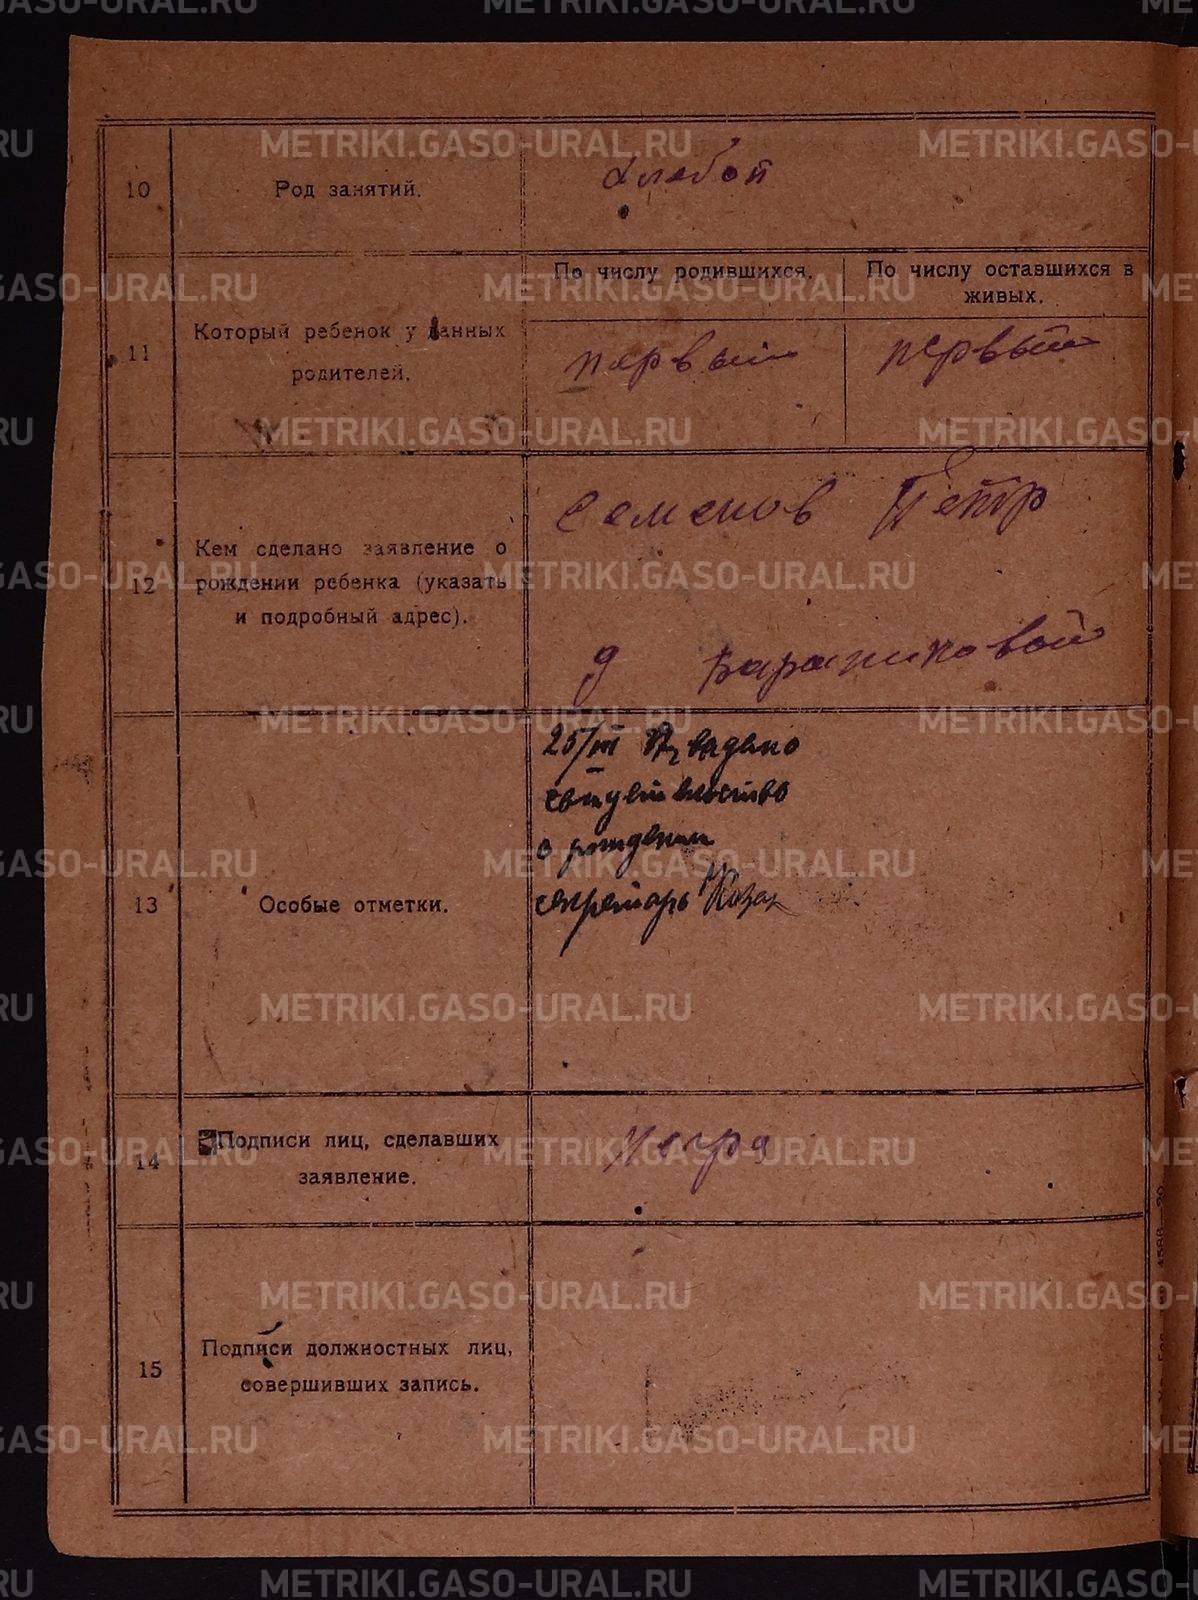 METRIKI.GASO-URAL.RU
10
Род занятий.
хлебоп
По числу родившихся.
По числу оставшихся в
живых.
11
Который ребенок у данных
родителей.
первый
первый
12
Кем сделано заявление о
рождении ребенка (указать
и подробный адрес).
Семенов Петр
д Баранниковой
13
Особые отметки.
25/III
свидетельство
о рождении
секретарь
14
Подписи лиц, сделавших
заявление.
15
Подписи должностных лиц,
совершивших запись.